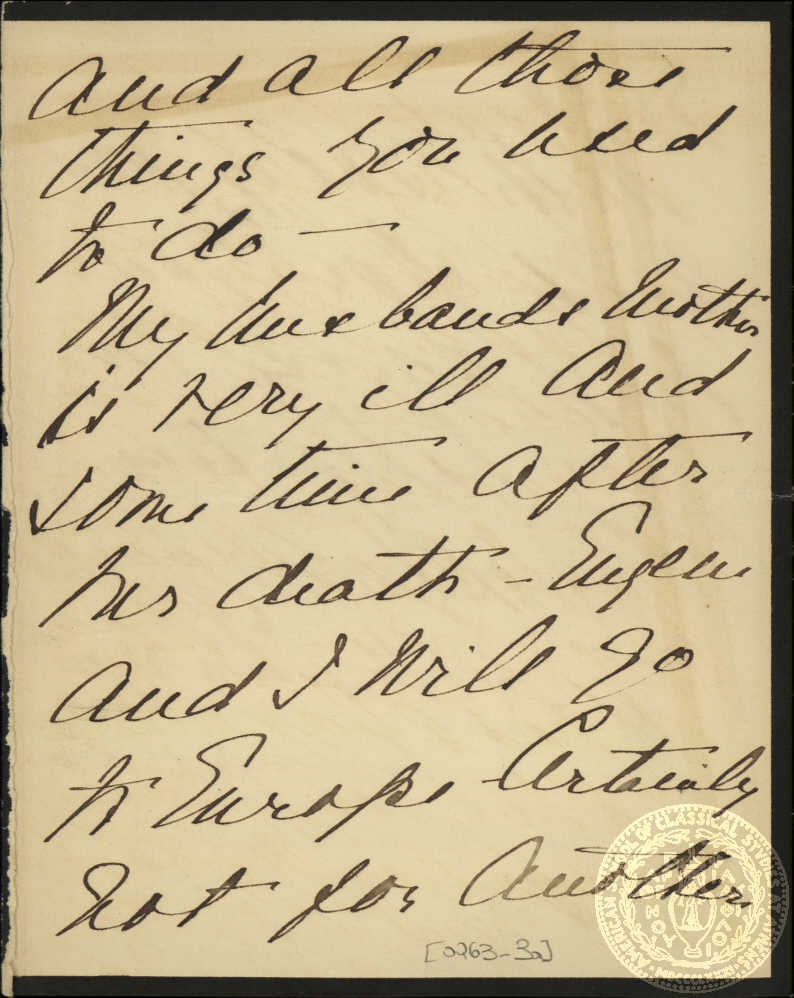 and all those
things you used
to do —
My husbands mother
is very ill and
some time after
her death – Eugene
and I will go
to Europe – Certainly
not for another
[0263-3a]
AMERICAN SCHOOL OF CLASSICAL STUDIES AT ATHENS